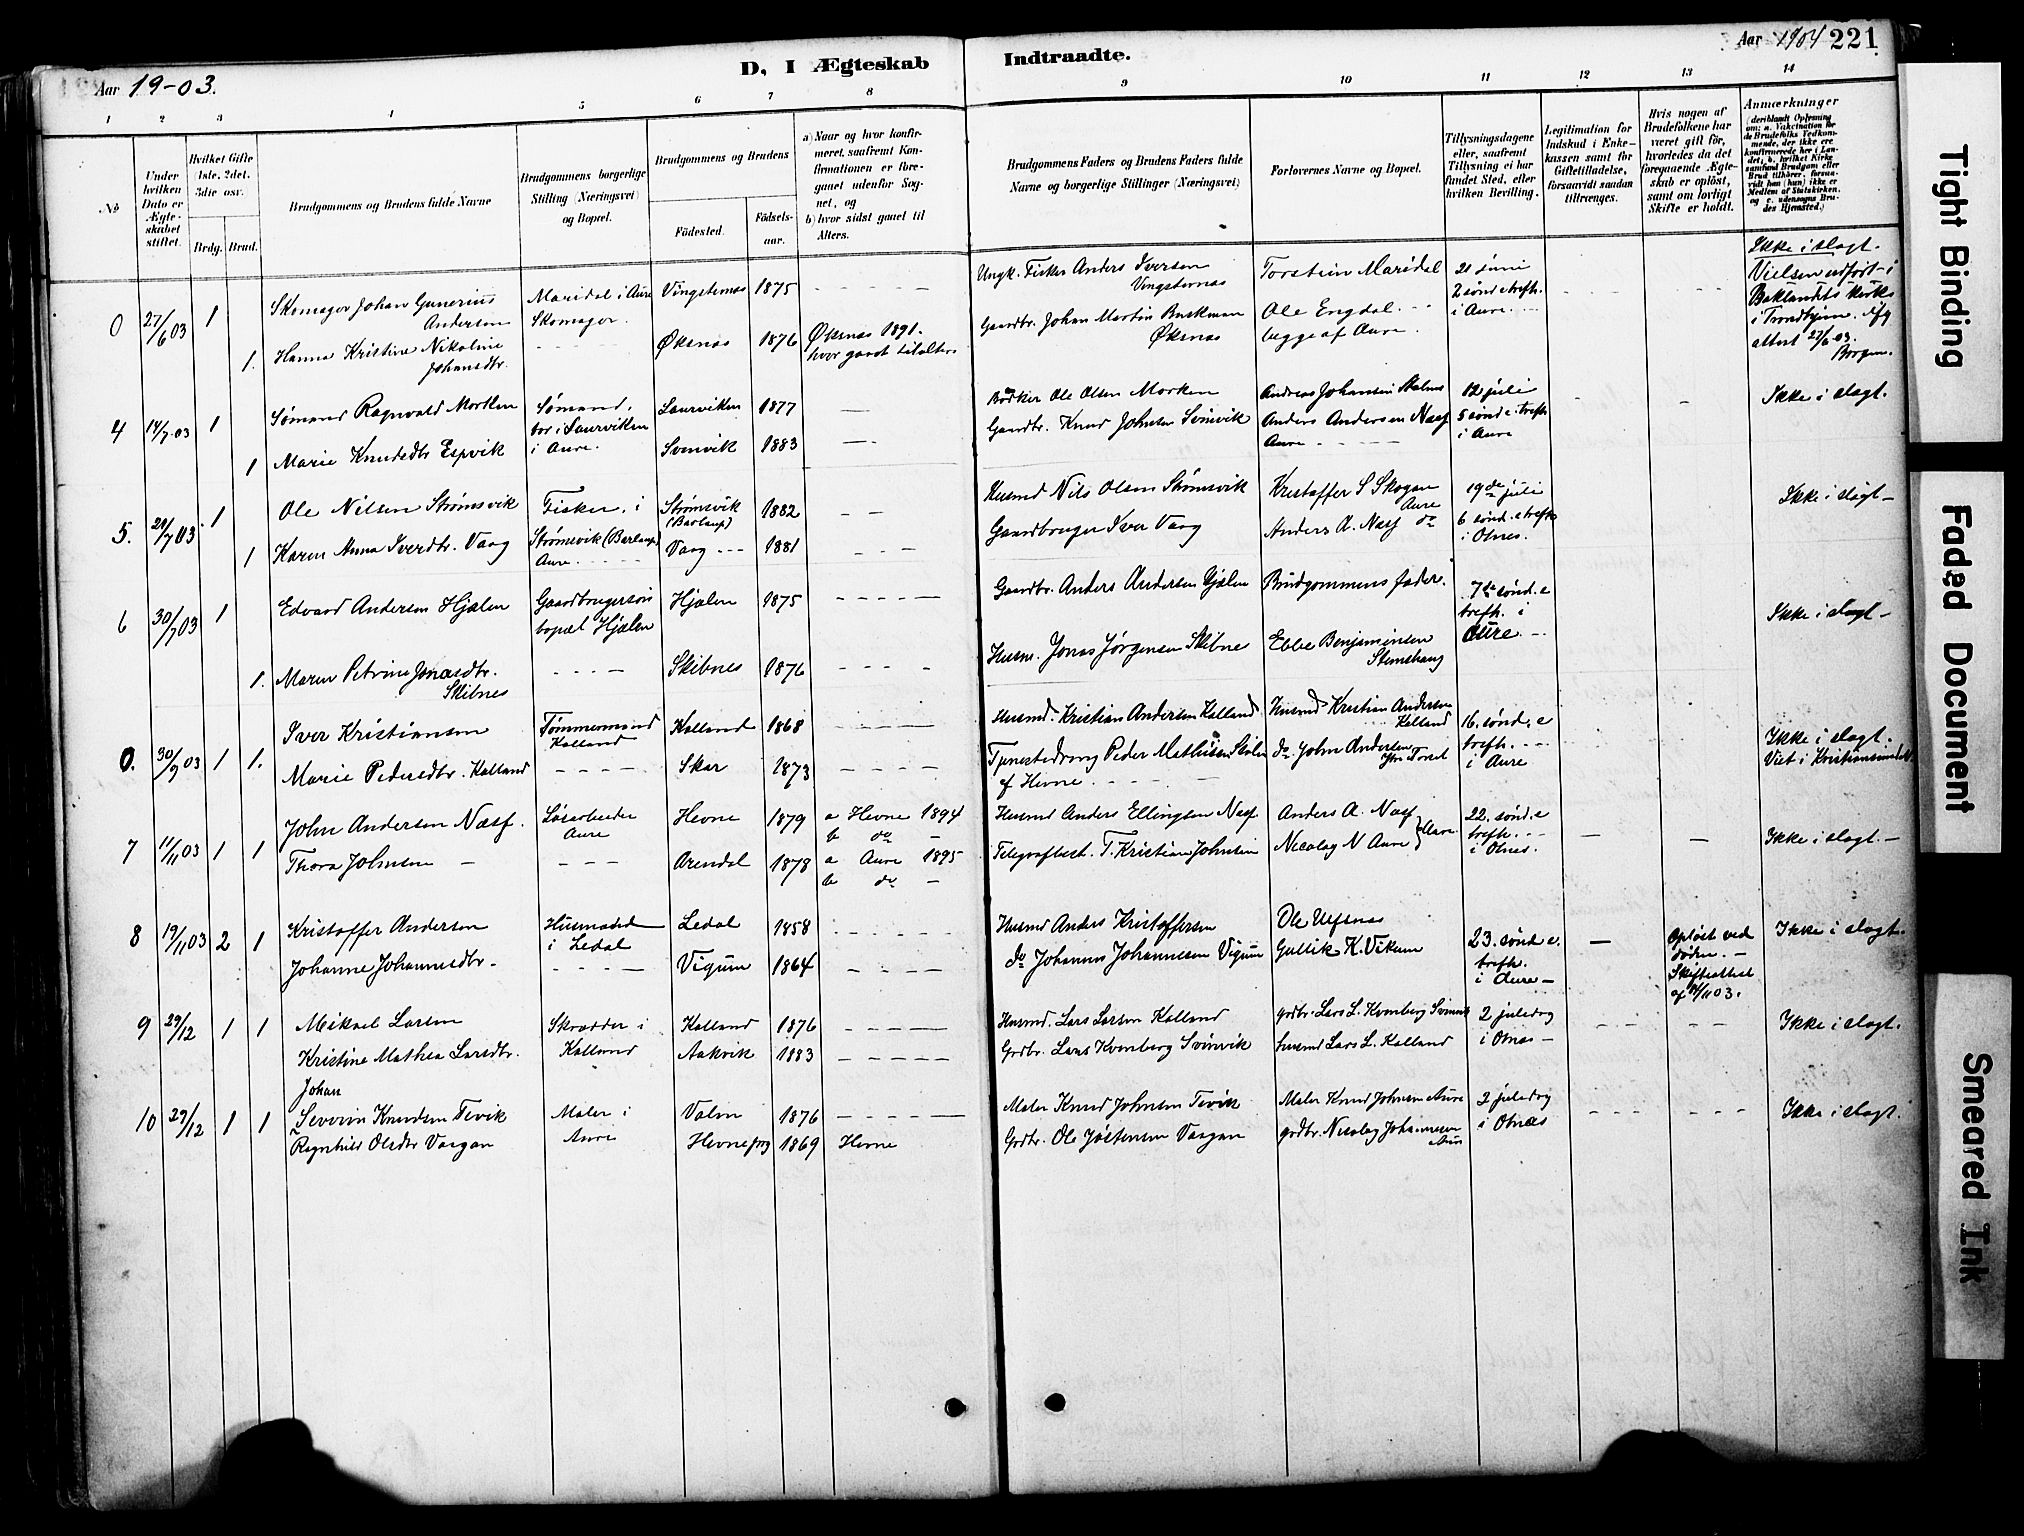 Aar 19-03.
D, I Ægteskab
Indtraadte.
Aar 1904 221
1 2 3 4 5 6 7 8 9 10 11 12 13 14
No
Under hvilken Dato er Ægteskabet stiftet.
Hvilket Gifte 1ste, 2det, 3die osv.
Brdg. Brud.
Brudgommens og Brudens fulde Navne
Brudgommens borgerlige Stilling (Næringsvei) og Bopæl.
Brudgommens og Brudens
Fødested. Fødselsaar.
a) Naar og hvor konfirmeret, saafremt Konfirmationen er foregaaet udenfor Sognet, og
b) hvor sidst gaaet til Alters.
Brudgommens Faders og Brudens Faders fulde Navne og borgerlige Stillinger (Næringsvei)
Forlovernes Navne og Bopæl.
Tillysningsdagene eller, saafremt Tillysning ei har fundet Sted, efter hvilken Bevilling.
Legitimation for Indskud i Enkekassen samt for Giftetilladelse, forsaavidt saadan tiltrænges.
Hvis nogen af Brudefolkene har været gift før, hvorledes da det foregaaende Ægteskab er opløst, samt om lovligt Skifte er holdt.
Anmærkninger
(deriblandt Oplysning om: a. Vakcination for de Brudefolks Vedkommende, der ikke ere konfirmerede her i Landet; b. hvilket Kirkesamfund Brudgom eller Brud tilhører, forsaavidt han (hun) ikke er Medlem af Statskirken, og c. udensogns Brudes Hjemsted.)
0 27/6 03 1 Skomager Johan Gunerius Andersen Maridal i Aure Skomager. Vingsternas 1875 - - - -
Ungk. Fisker Anders Iversen Vingsternas Torstein Maridal 21 juni 2 sønd e trefh. i Aure. Ikke i slagt.
Vielsen udført i Baklandets Kirke i Trondhjem. Afg attest 27/6 03. Borgen.
1. Hanna Kristine Nikoline Johansdtr. - - - - Øksnas 1876 Øksnas 1891. hvor gaaet til alters
Gaardbr. Johan Martin Buskman Øksnas Ole Engdal begge af Aure.
4 14/7 03 1 Sømand Ragnvald Morken Sømand, bor i Laurviken i Aure. Laurviken 1877 -
Bødker Ole Olsen Morken Andreas Johansen Skalnes 12 juli 5 sønd e. trefh. i Aure Ikke i slagt.
1 Marie Knudsdtr Espvik Svinvik 1883 -
Gaardbr. Knud Johnsen Svinvik Anders Andersen Næss Aure - - - -
5. 21/7 03 1 Ole Nilsen Strømsvik Fisker, i Strømsvik (Barlaup) Aure. Strømsvik (Barlaup) 1882 - -
Husmd Nils Olsen Strømsvik Kristoffer S Skogan Aure 19de juli 6 sønd. e trefh i Otnes. Ikke i slagt -
1 Karen Anna Iverdtr. Vaag Vaag - - - 1881 - - -
Gaardbruger Iver Vaag Anders A. Næss do
6 30/7 03 1 Edvard Andersen Hjælen Gaardbrugersøn bopæl Hjælen Hjælen 1875 - - - -
Gaardbr. Anders Andersen Hjælen Brudgommens fader. 7de sønd. e trefh. i Aure. - - Ikke i slagt -
1. Maren Petrine Jonasdtr. Skibnes - - - - Skibnes 1876 - - - -
Husm. Jonas Jørgensen Skibne Ebbe Benjaminsen Stemshaug
0. 30/9 03 1 1. Iver Kristiansen Tømmermand Kalland Kalland 1868 - - - -
Husmd. Kristian Andersen Kalland Husmd Kristian Andersen Kalland 16. sønd. e trefh. - - - i Aure Ikke i slagt. Viet i Kristianssund N.
Marie Pedersdtr. Kalland - - - - Skar 1873 - - - -
Tjenestedreng Peder Mathissen af Hevne - - - - do John Andersen
7 11/11 03 1 1 John Andersen Næss. Løsarbeider Aure Hevne 1879 a Hevne 1894 b do -
Husmd Anders Ellingsen Næss Anders A. Næss 22. sønd. e trefh. - - - i Otnes. - - Ikke i slagt. -
Thora Johnsen - - - - Arendal 1878 a Aure 1895 b do -
Telegrafbest. T. Kristian Johnsen Nicolay N Aure } Aure.
8 19/11 03 2 1 Kristoffer Andersen Husmand i Ledal Ledal 1858 - - - -
Husmd Anders Kristoffersen Ole Ulfsnas 23. sønd e. trefh. i Aure - - Opløst ved døden. - Skifteattest af 14/11 03. Ikke i slagt.
Johanne Johannesdtr. - - - - - Vigum 1864 - - - -
do Johannes Johannesen Vigum Gullik K. Vikum
9 29/12 1 1 Mikael Larsen Skrædder i Kalland Kalland 1876 - - - - -
Husmd. Lars Larsen Kalland grdbr. Lars L. Kvenberg Svinvik 2 juledag i Otnes - - - - - - Ikke i slagt.
Kristine Mathea Larsdtr. Aakvik 1883 - - - - -
Grdbr. Lars Kvenberg Svinvik husmd Lars L. Kalland
10 29/12 1 1 Johan Severin Knudsen Tevik Maler i Aure Valen 1876 - - - - -
Maler Knud Johnsen Tevik Maler Knud Johnsen Aure 2 juledag i Otnæs - - - - - - Ikke i slagt.
Ragnhild Olsdtr Vaagan Hevne prg 1869 Hevne
Grdbr. Ole Jøstensen Vaagan grdbr. Nicolay Johannesen Aure
Tight Binding
Faded Document
Smeared Ink